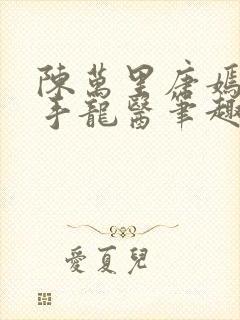 陳萬里唐嫣
手龍醫筆趣
愛夏兒